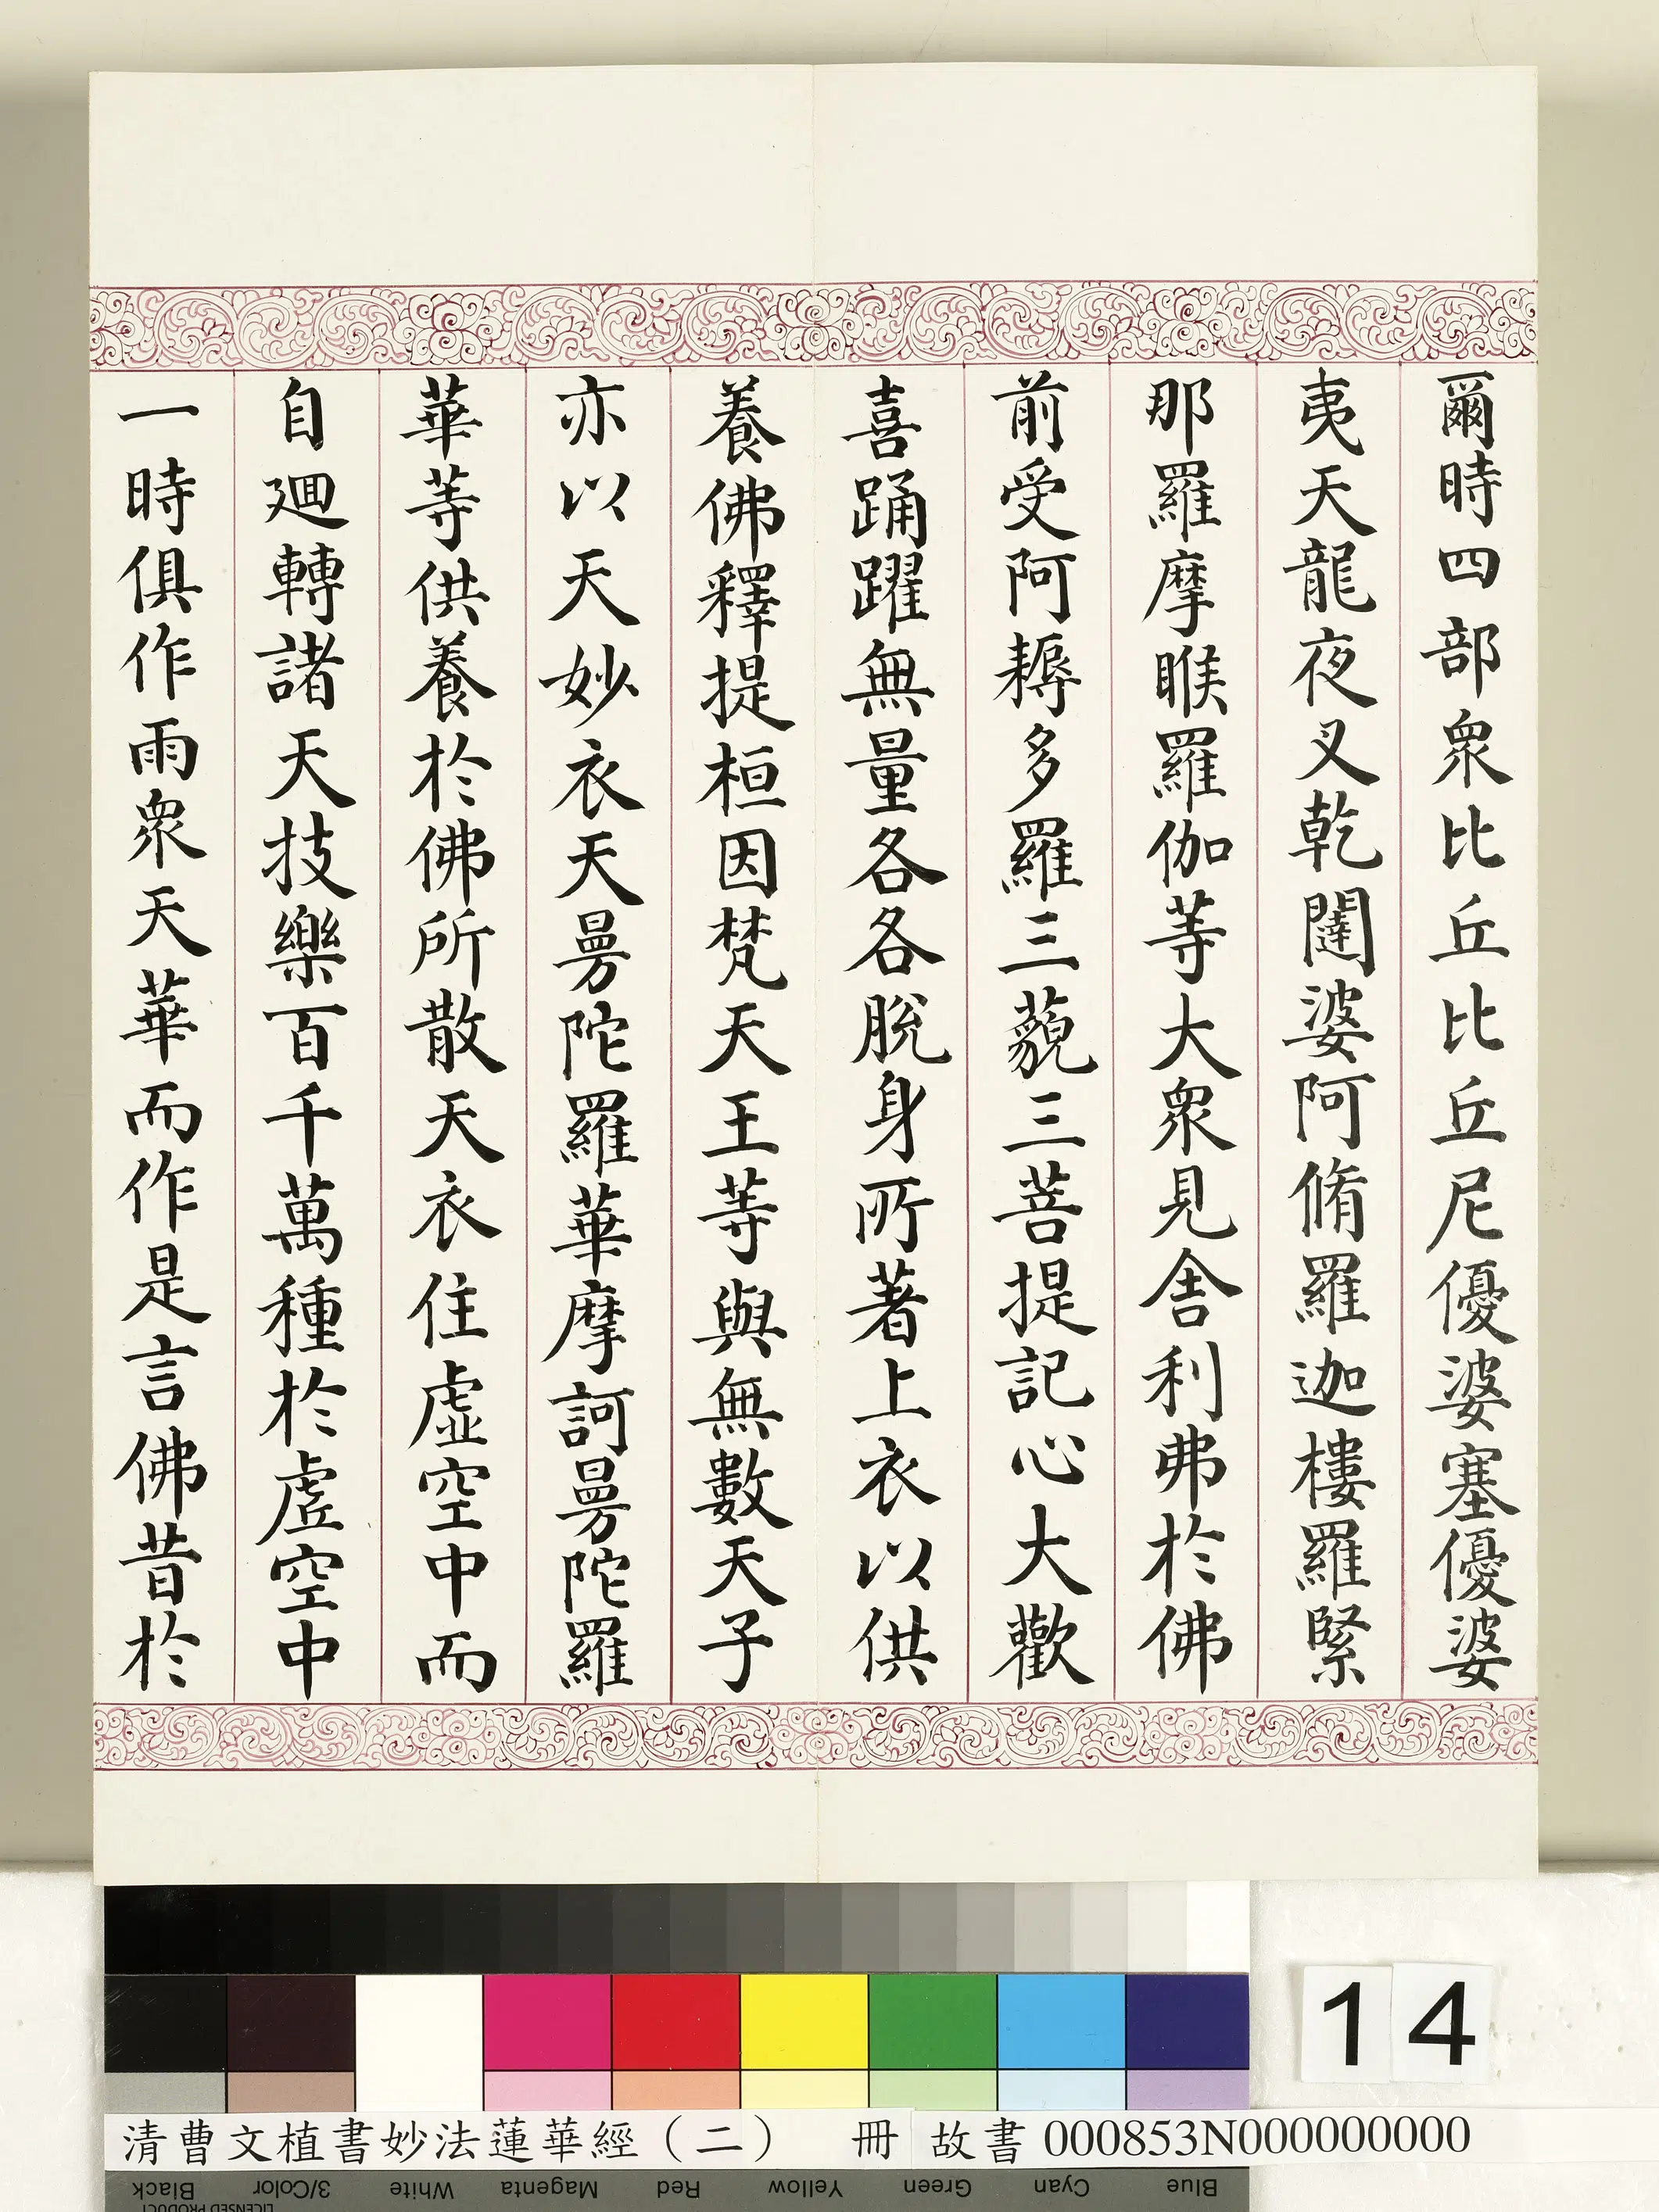 爾時四部眾比丘比丘尼優婆塞優婆
夷天龍夜叉乾闥婆阿脩羅迦樓羅緊
那羅摩睺羅伽等大眾見舍利弗於佛
前受阿耨多羅三藐三菩提記心大歡
喜踊躍無量各各脫身所著上衣以供
養佛釋提桓因梵天王等與無數天子
亦以天妙衣天曼陀羅華摩訶曼陀羅
華等供養於佛所散天衣住虛空中而
自迴轉諸天技樂百千萬種於虛空中
一時俱作雨眾天華而作是言佛昔於
14
清曹文植書妙法蓮華經(二) 冊 故書 000853N000000000
Black 3/Color White Magenta Red Yellow Green Cyan Blue
LICENSED PRODUCT